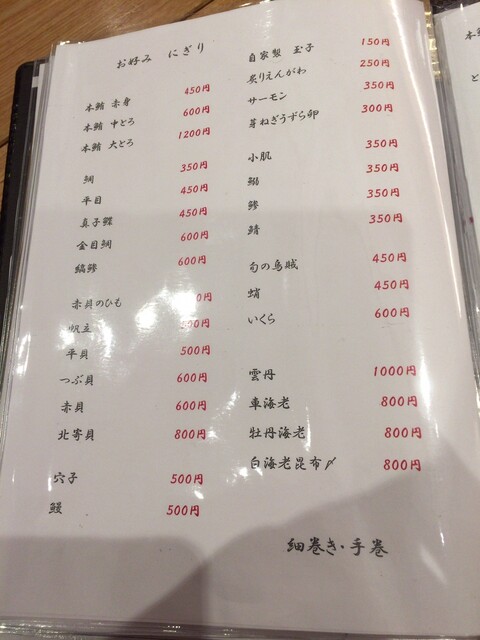 お好み にぎり
本鮪 赤身 450円
本鮪 中とろ 600円
本鮪 大とろ 1200円
鯛 350円
平目 450円
真子鰈 450円
金目鯛 600円
縞鯵 600円
赤貝のひも 0円
帆立 500円
平貝 500円
つぶ貝 600円
赤貝 600円
北寄貝 800円
穴子 500円
鰻 500円
自家製 玉子 150円
炙りえんがわ 250円
サーモン 350円
芽ねぎうずら卵 300円
小肌 350円
鰯 350円
鯵 350円
鯖 350円
旬の烏賊 450円
蛸 450円
いくら 600円
雲丹 1000円
車海老 800円
牡丹海老 800円
白海老昆布〆 800円
細巻き・手巻